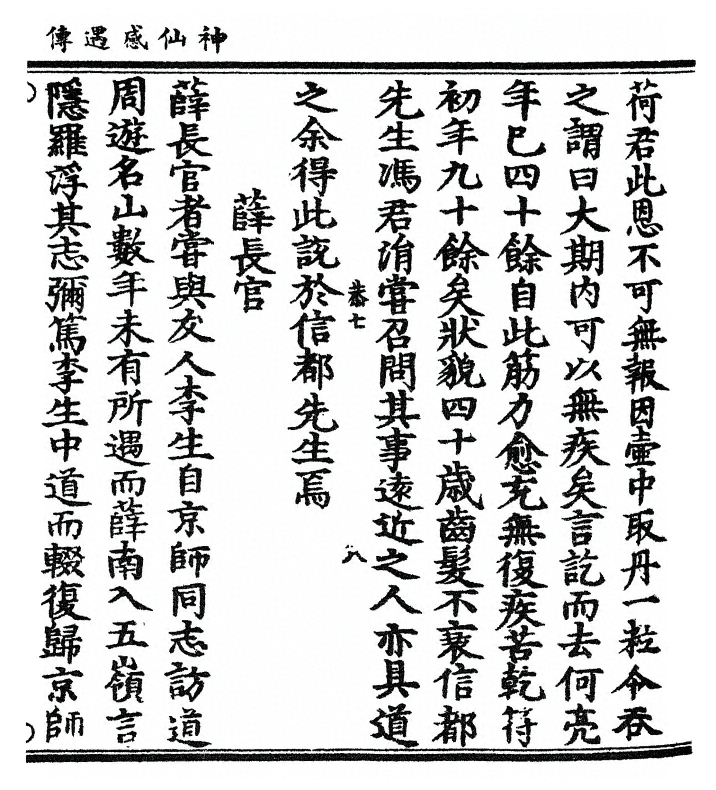 神仙感遇傳
荷君此恩不可無報因壷中取丹一粒令吞
之謂曰大期内可以無疾矣言訖而去何亮
年已四十餘自此筋力愈充無復疾苦乾符
初年九十餘矣狀貌四十歳齒髮不衰信都
先生馮君涓嘗召問其事遠近之人亦具道
卷七
八
之余得此説於信都先生焉
薛長官
薛長官者嘗與友人李生自京師同志訪道
周遊名山數年未有所遇而薛南入五嶺言
隱羅浮其志彌篤李生中道而輟復歸京師